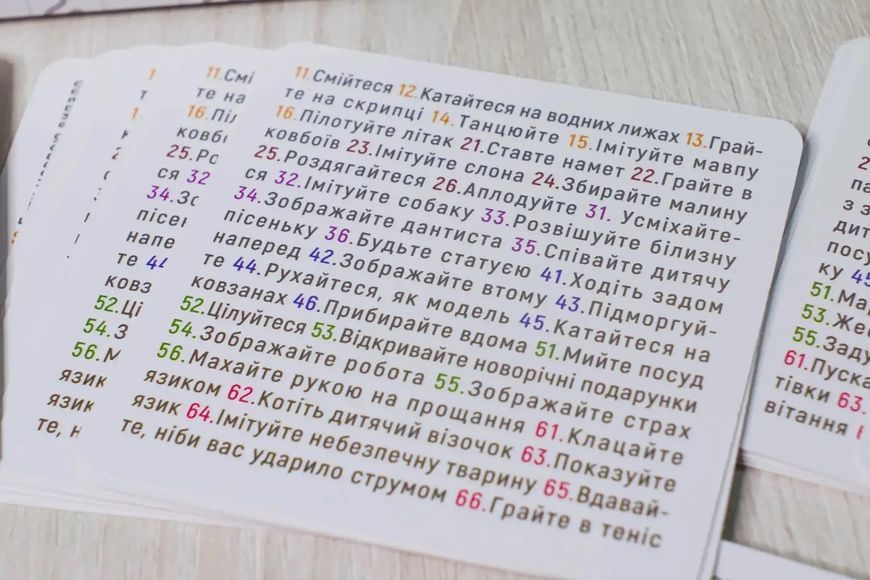 11.Смійтеся 12.Катайтеся на водних лижах 13.Грай-
те на скрипці 14.Танцюйте 15.Імітуйте мавпу
16.Пілотуйте літак 21.Ставте намет 22.Грайте в
ковбоїв 23.Імітуйте слона 24.Збирайте малину
25.Роздягайтеся 26.Аплодуйте 31. Усміхайте-
ся 32.Імітуйте собаку 33.Розвішуйте білизну
34.Зображайте дантиста 35.Співайте дитячу
пісеньку 36.Будьте статуєю 41.Ходіть задом
наперед 42.Зображайте втому 43.Підморгуй-
те 44.Рухайтеся, як модель 45.Катайтеся на
ковзанах 46.Прибирайте вдома 51.Мийте посуд
52.Цілуйтеся 53.Відкривайте новорічні подарунки
54.Зображайте робота 55.Зображайте страх
56.Махайте рукою на прощання 61.Клацайте
язиком 62.Котіть дитячий візочок 63.Показуйте
язик 64.Імітуйте небезпечну тварину 65.Вдавай-
те, ніби вас ударило струмом 66.Грайте в теніс